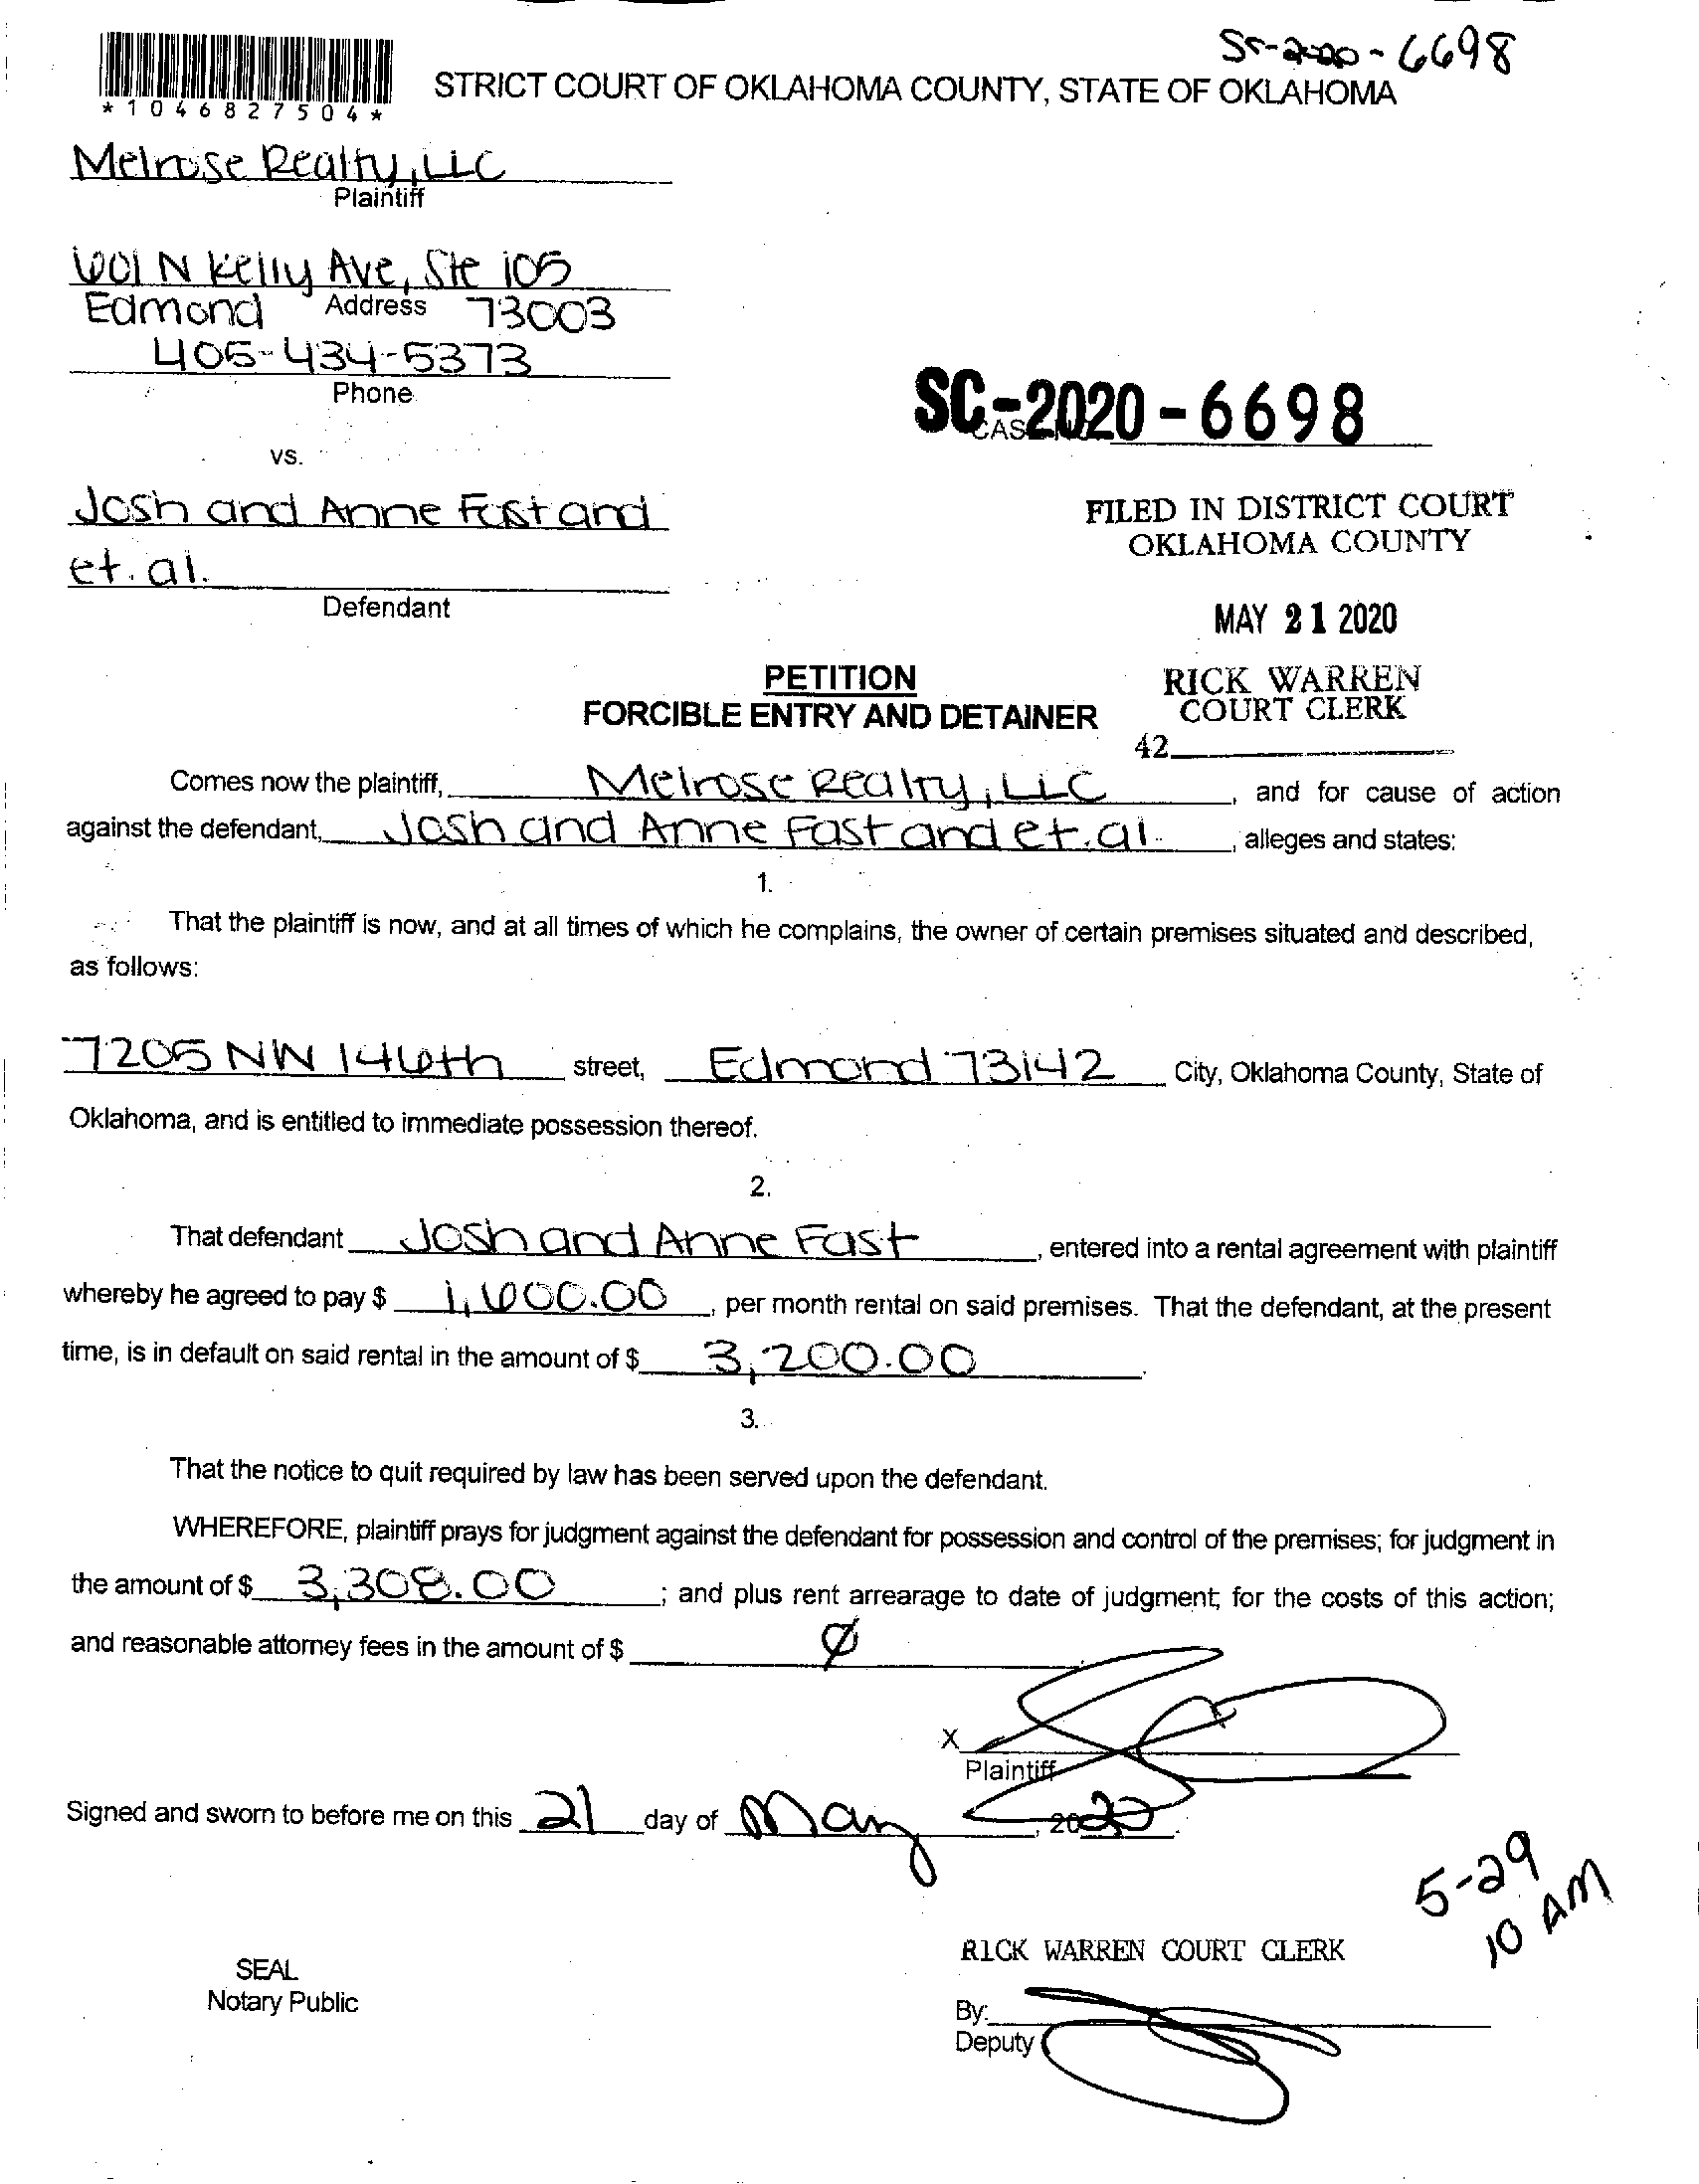 SC-2020-6698
*1046827504*
STRICT COURT OF OKLAHOMA COUNTY, STATE OF OKLAHOMA
Melrose Realty, LLC
Plaintiff
601 N Kelly Ave, Ste 105
Edmond Address 73003
405-434-5373
Phone
SC-2020-6698
CAS
vs.
Josh and Anne Fast and
et. al.
Defendant
FILED IN DISTRICT COURT
OKLAHOMA COUNTY
MAY 21 2020
RICK WARREN
COURT CLERK
42
PETITION
FORCIBLE ENTRY AND DETAINER
Comes now the plaintiff, Melrose Realty, LLC, and for cause of action
against the defendant, Josh and Anne Fast and et. al., alleges and states:
1.
That the plaintiff is now, and at all times of which he complains, the owner of certain premises situated and described,
as follows:
7205 NW 146th street, Edmond 73142 City, Oklahoma County, State of
Oklahoma, and is entitled to immediate possession thereof.
2.
That defendant Josh and Anne Fast, entered into a rental agreement with plaintiff
whereby he agreed to pay $ 1,600.00, per month rental on said premises. That the defendant, at the present
time, is in default on said rental in the amount of $ 3,200.00.
3.
That the notice to quit required by law has been served upon the defendant.
WHEREFORE, plaintiff prays for judgment against the defendant for possession and control of the premises; for judgment in
the amount of $ 3,308.00; and plus rent arrearage to date of judgment; for the costs of this action;
and reasonable attorney fees in the amount of $ Ø
X
Plaintiff
Signed and sworn to before me on this 21 day of May, 2020
5-29
10 AM
RICK WARREN COURT CLERK
SEAL
Notary Public
By:
Deputy